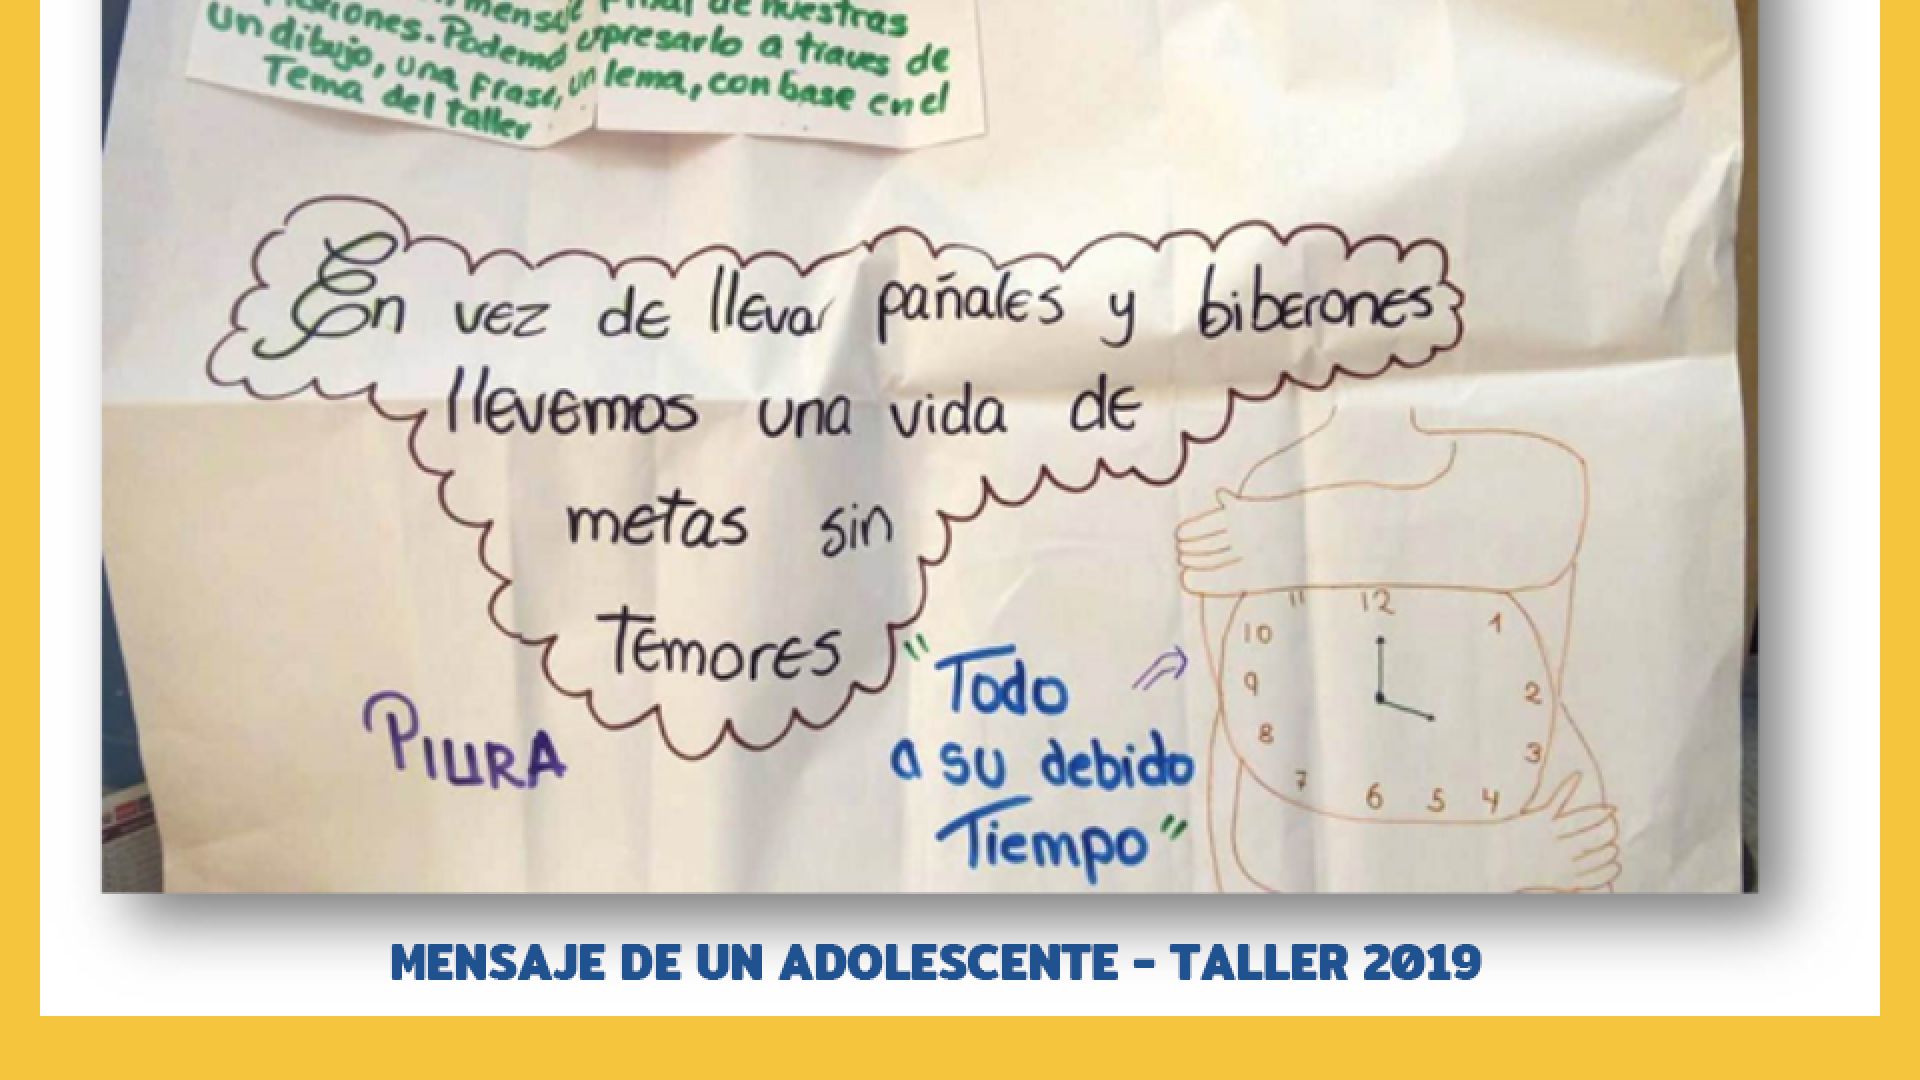 mensaje final de nuestras
Un dibujo, una Frase, un lema, con base en el
Tema del taller
En vez de llevar pañales y biberones
llevemos una vida de
metas sin
Temores
PIURA
"Todo
a su debido
Tiempo"
11 12 1
10
9 2
8 3
7 6 5 4
MENSAJE DE UN ADOLESCENTE - TALLER 2019